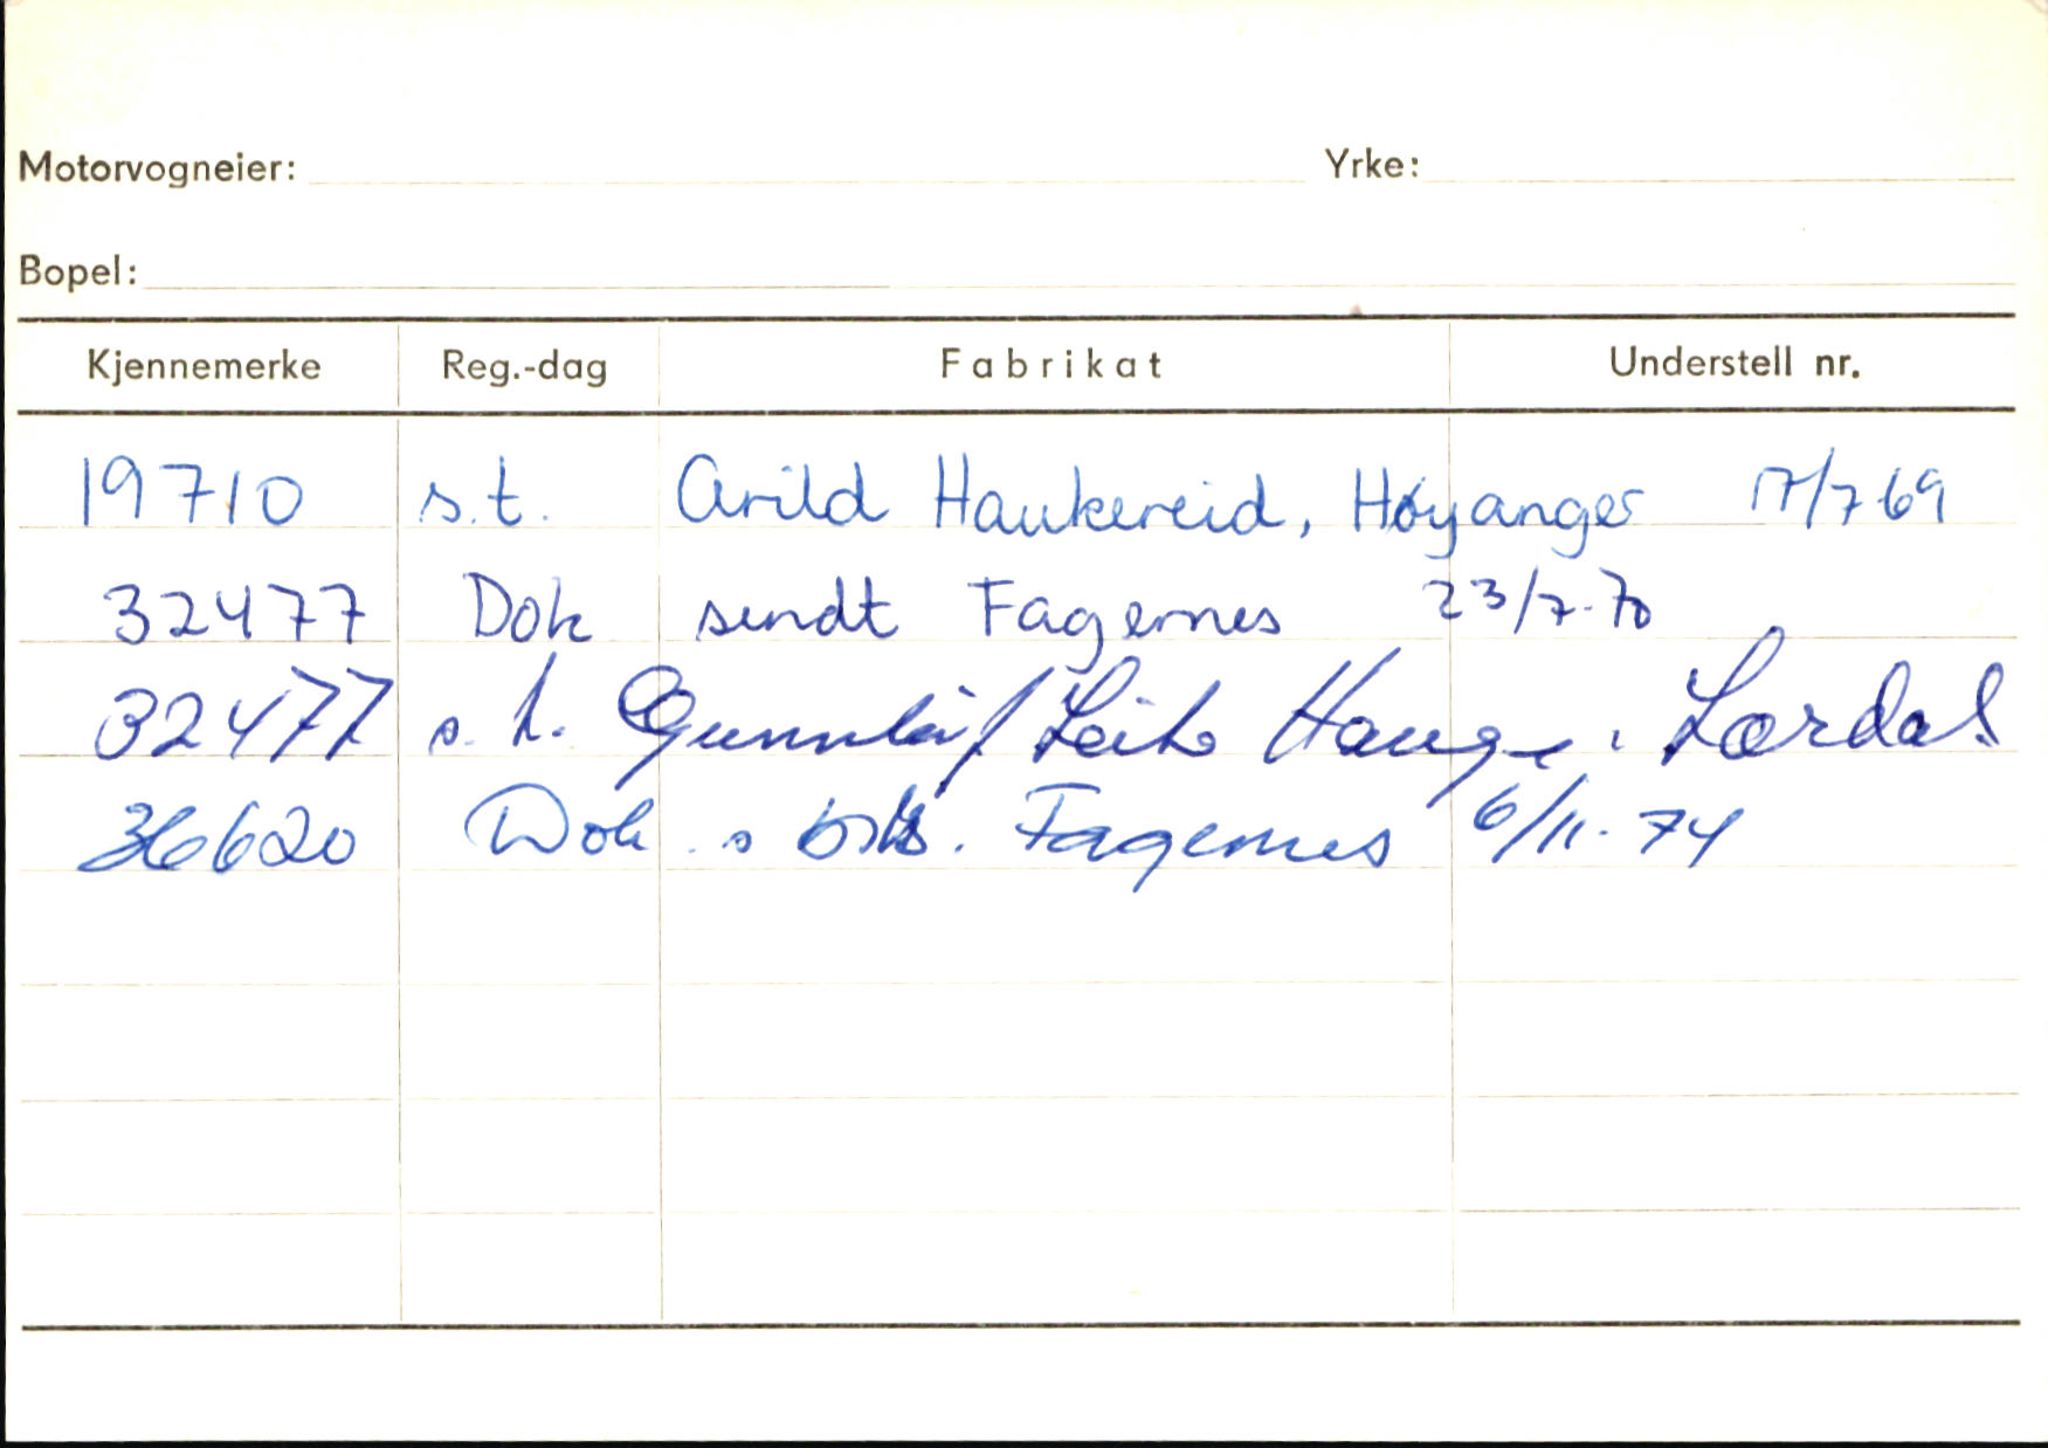 Motorvogneier: Yrke:
Bopel:
Kjennemerke Reg.-dag Fabrikat Understell nr.
19710 s.t. Arild Haukereid, Høyanger 17/7 69
32477 Dok sendt Fagernes 23/7-70
32477 s. t. Gunnleif Hauge, Lærdal
36620 Dok. s Fagernes 6/11-74